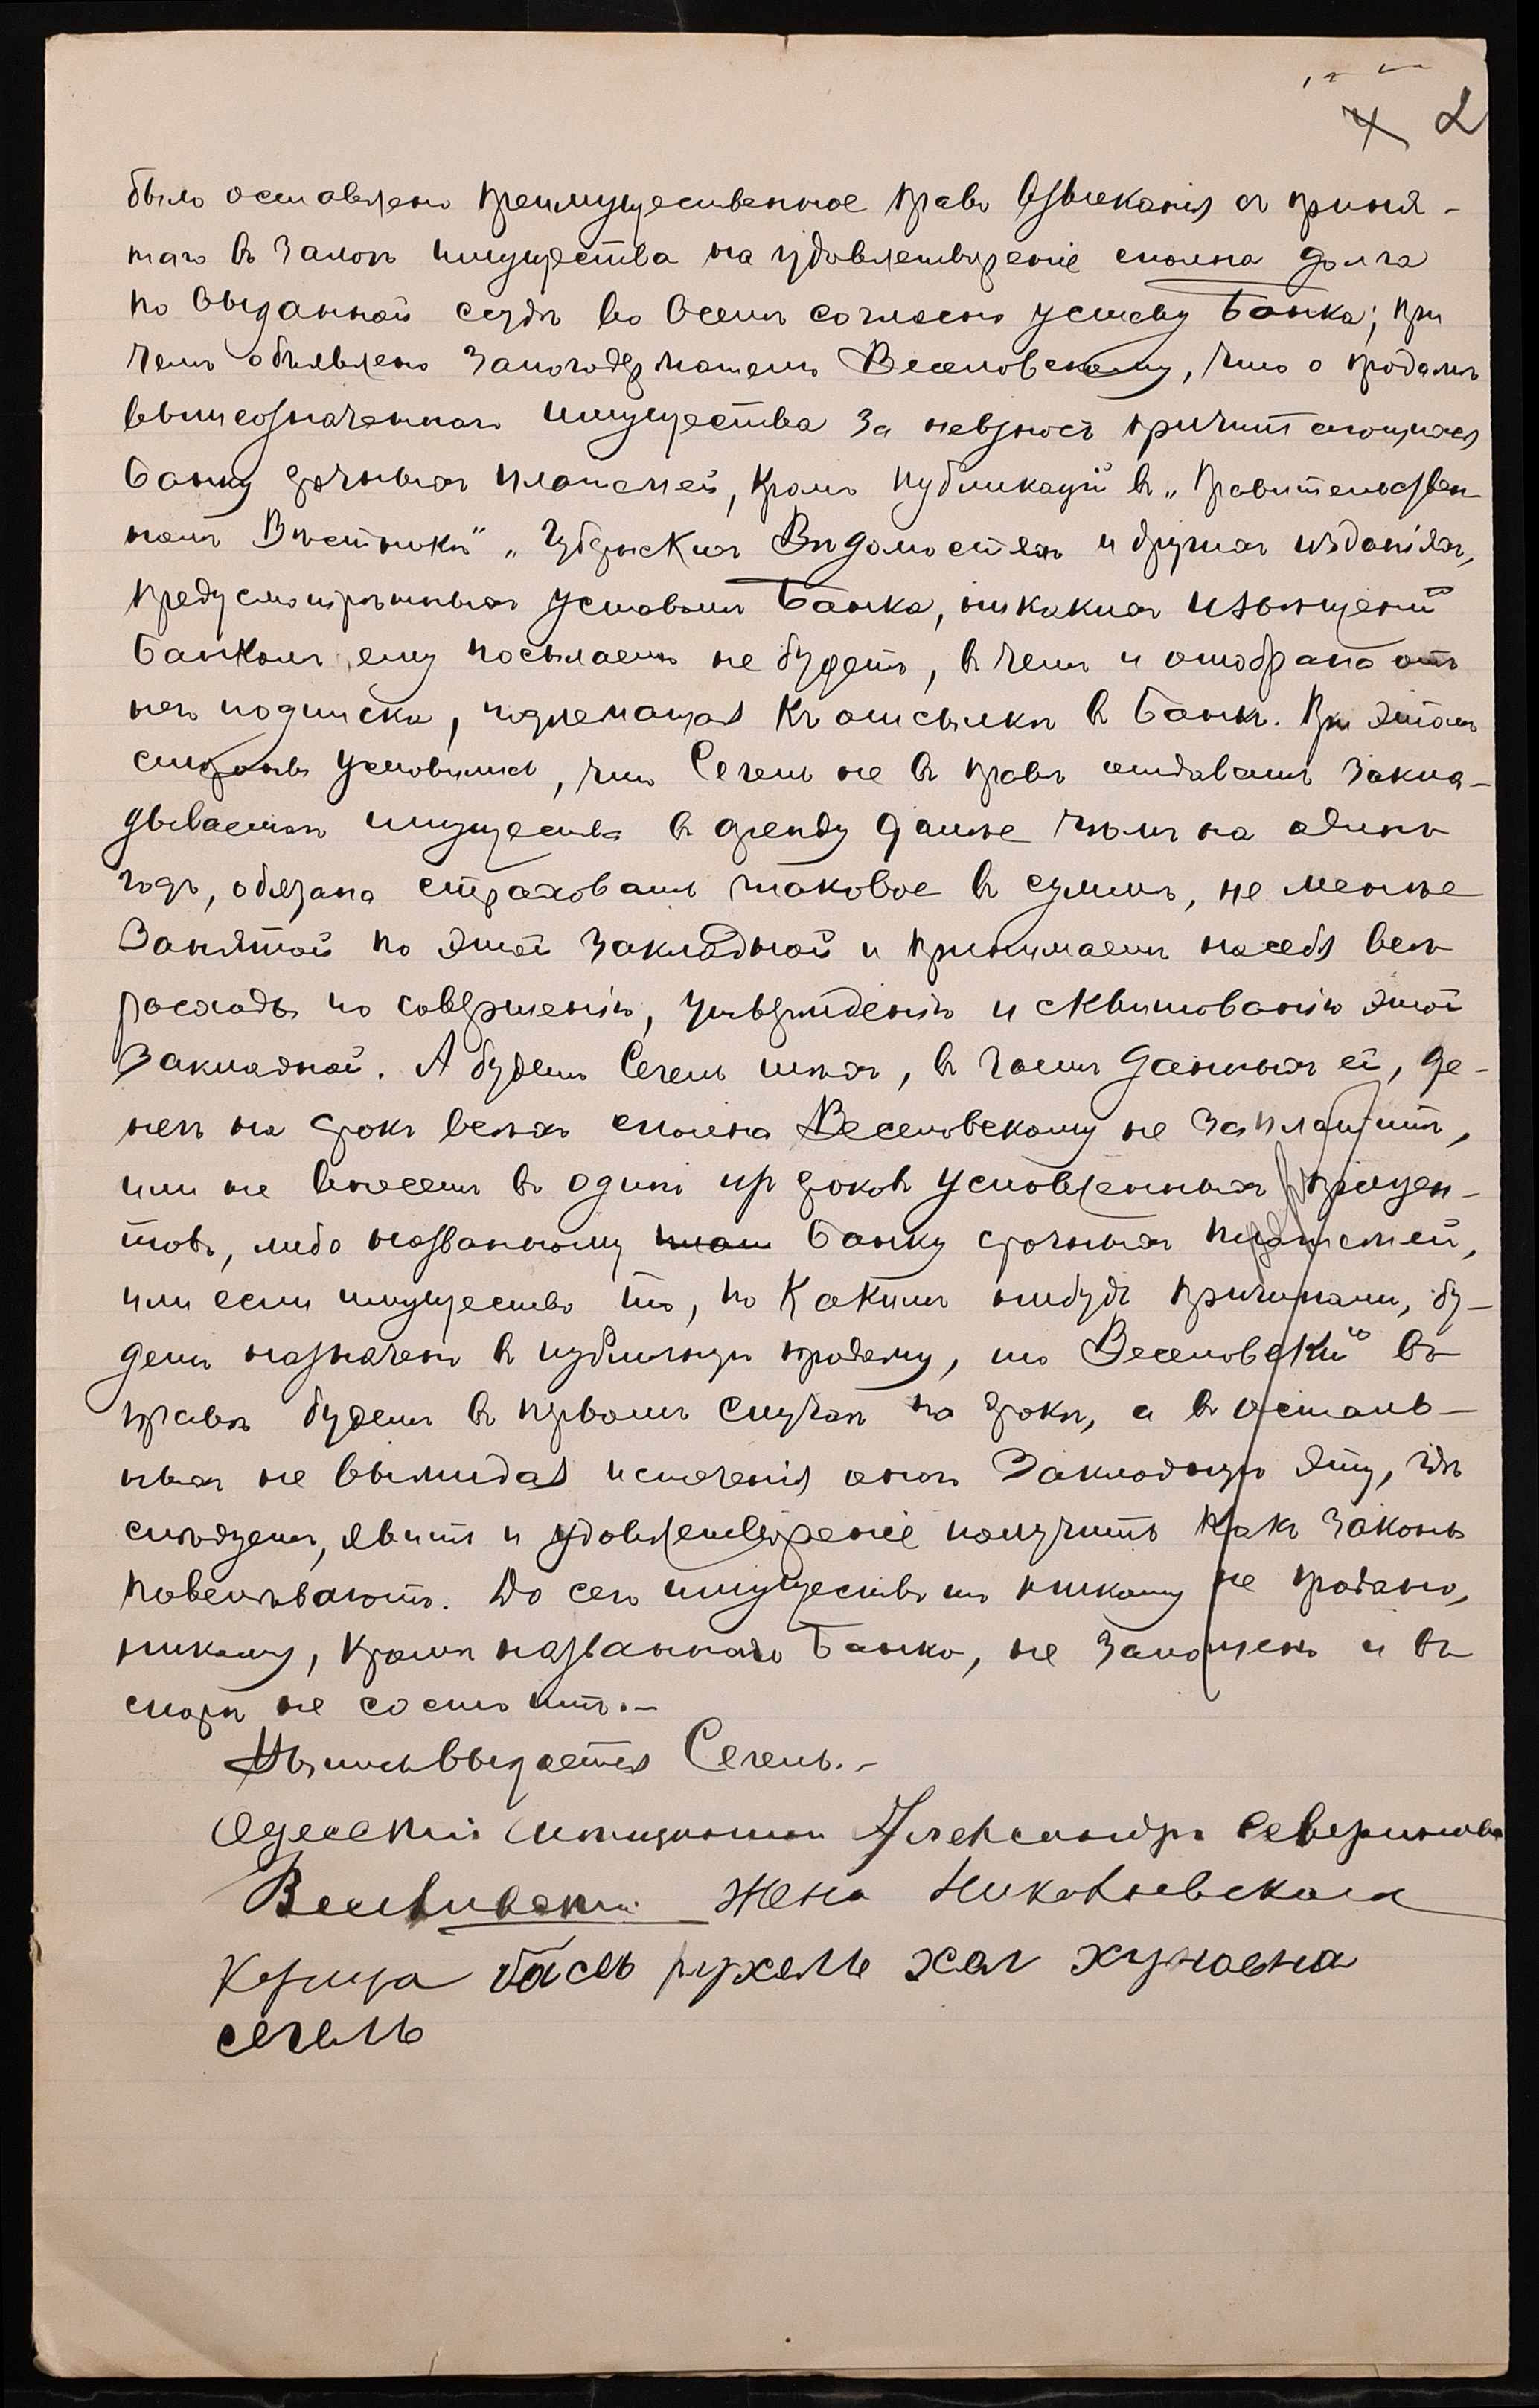 2
было оставлено преимущественное право взысканія съ приня-
таго въ залогъ имущества на удовлетвореніе сполна долга
по выданной ссудѣ во всемъ согласно уставу Банка; при
чемъ объявлено залогодержателю Веселовскому, что о продажѣ
вышеозначеннаго имущества за невзносъ причитающихся
банку срочныхъ платежей, кромѣ публикацій въ „Правительствен-
номъ Вѣстникѣ" „Губернскихъ Вѣдомостяхъ и другихъ изданіяхъ,
предусмотрѣнныхъ уставомъ Банка, никакихъ извѣщеній
Банкомъ ему посылаемо не будетъ, въ чемъ и отобрана отъ
него подписка, подлежащая къ отсылкѣ въ Банкъ. При этомъ
стороны условились, что Сегель не въ правѣ отдавать закла-
дываемаго имущества въ аренду далѣе чѣмъ на одинъ
годъ, обязана страховать таковое въ суммѣ, не менѣе
занятой по этой закладной и принимаетъ на себя всѣ
расходы по совершенію, утвержденію и сквитованію этой
закладной. А будетъ Сегель тѣхъ, въ заемъ данныхъ ей, де-
негъ на срокъ всѣхъ сполна Веселовскому не заплатитъ,
или не внесетъ въ одинъ изъ сроковъ условленныхъ процен-
товъ, либо названному Банку срочныхъ платежей,
или если имущество то, по какимъ нибудь причинамъ, бу-
детъ назначено въ публичную продажу, то Веселовскій въ
правѣ будетъ въ первомъ случаѣ по срокѣ, а въ осталь-
ныхъ не выжидая истеченія онаго закладную эту, гдѣ
слѣдуетъ, явить и удовлетвореніе получить какъ законы
повелѣваютъ. До сего имущество то никому не продано,
никому, кромѣ названнаго Банка, не заложено и въ
спорѣ не состоитъ.–
Выпись выдается Сегель.–
Одесскій мѣщанинъ Александръ Севериновъ
Веселовскій. Жена Николаевскаго
Купца бася рухель хая хуновна
сегель